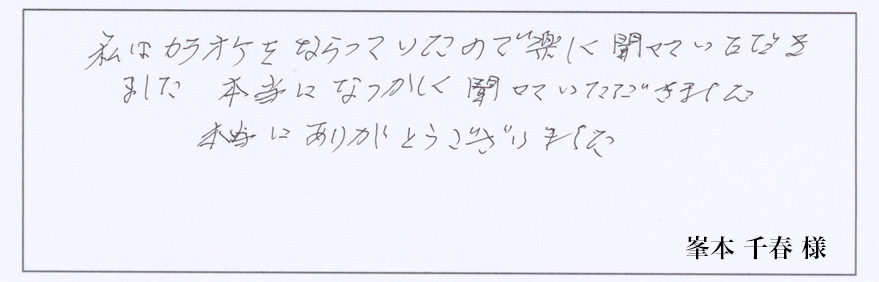 私はカラオケをならっていたので楽しく聞せていただき
ました 本当になつかしく聞せていただきました
本当にありがとうございました
峯本 千春 様